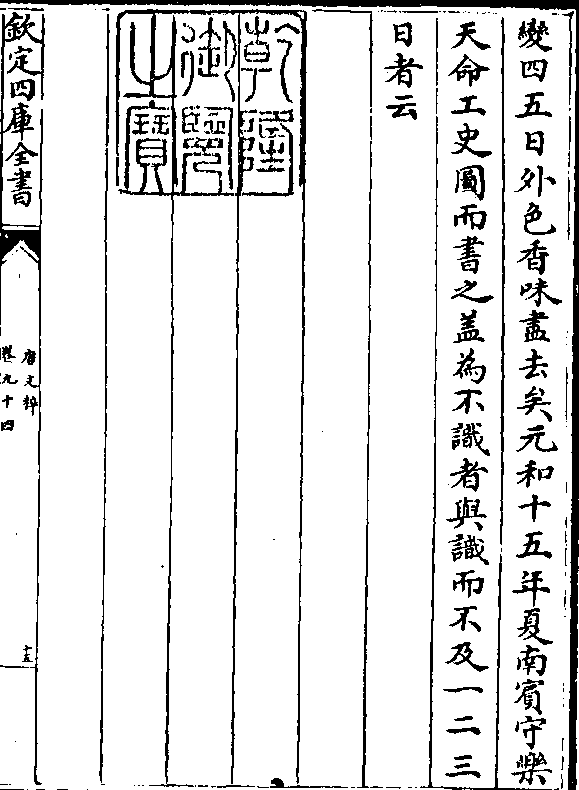 變四五日外色香味盡去矣元和十五年夏南賓守樂
天命工史圖而書之盖為不識者與識而不及一二三
日者云
乾隆
御覽
之寶
欽定四庫全書
唐文粹
卷九十四
十五